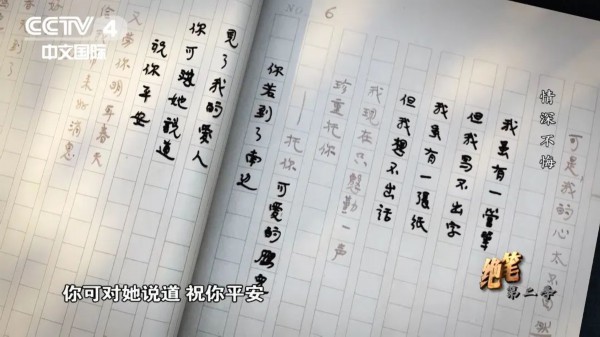 CCTV 4
中文国际
NO.
6
情深不悔
可是,我的心太不
我虽有一管笔
但我写不出字
我虽有一张纸
但我想不出话
我现在只慇勤一声
珍重
可爱的
你若到了南边
见了我的爱人
你可对她说道
祝你平安
明年春天
消息
你可对她说道 祝你平安
绝笔
第二季